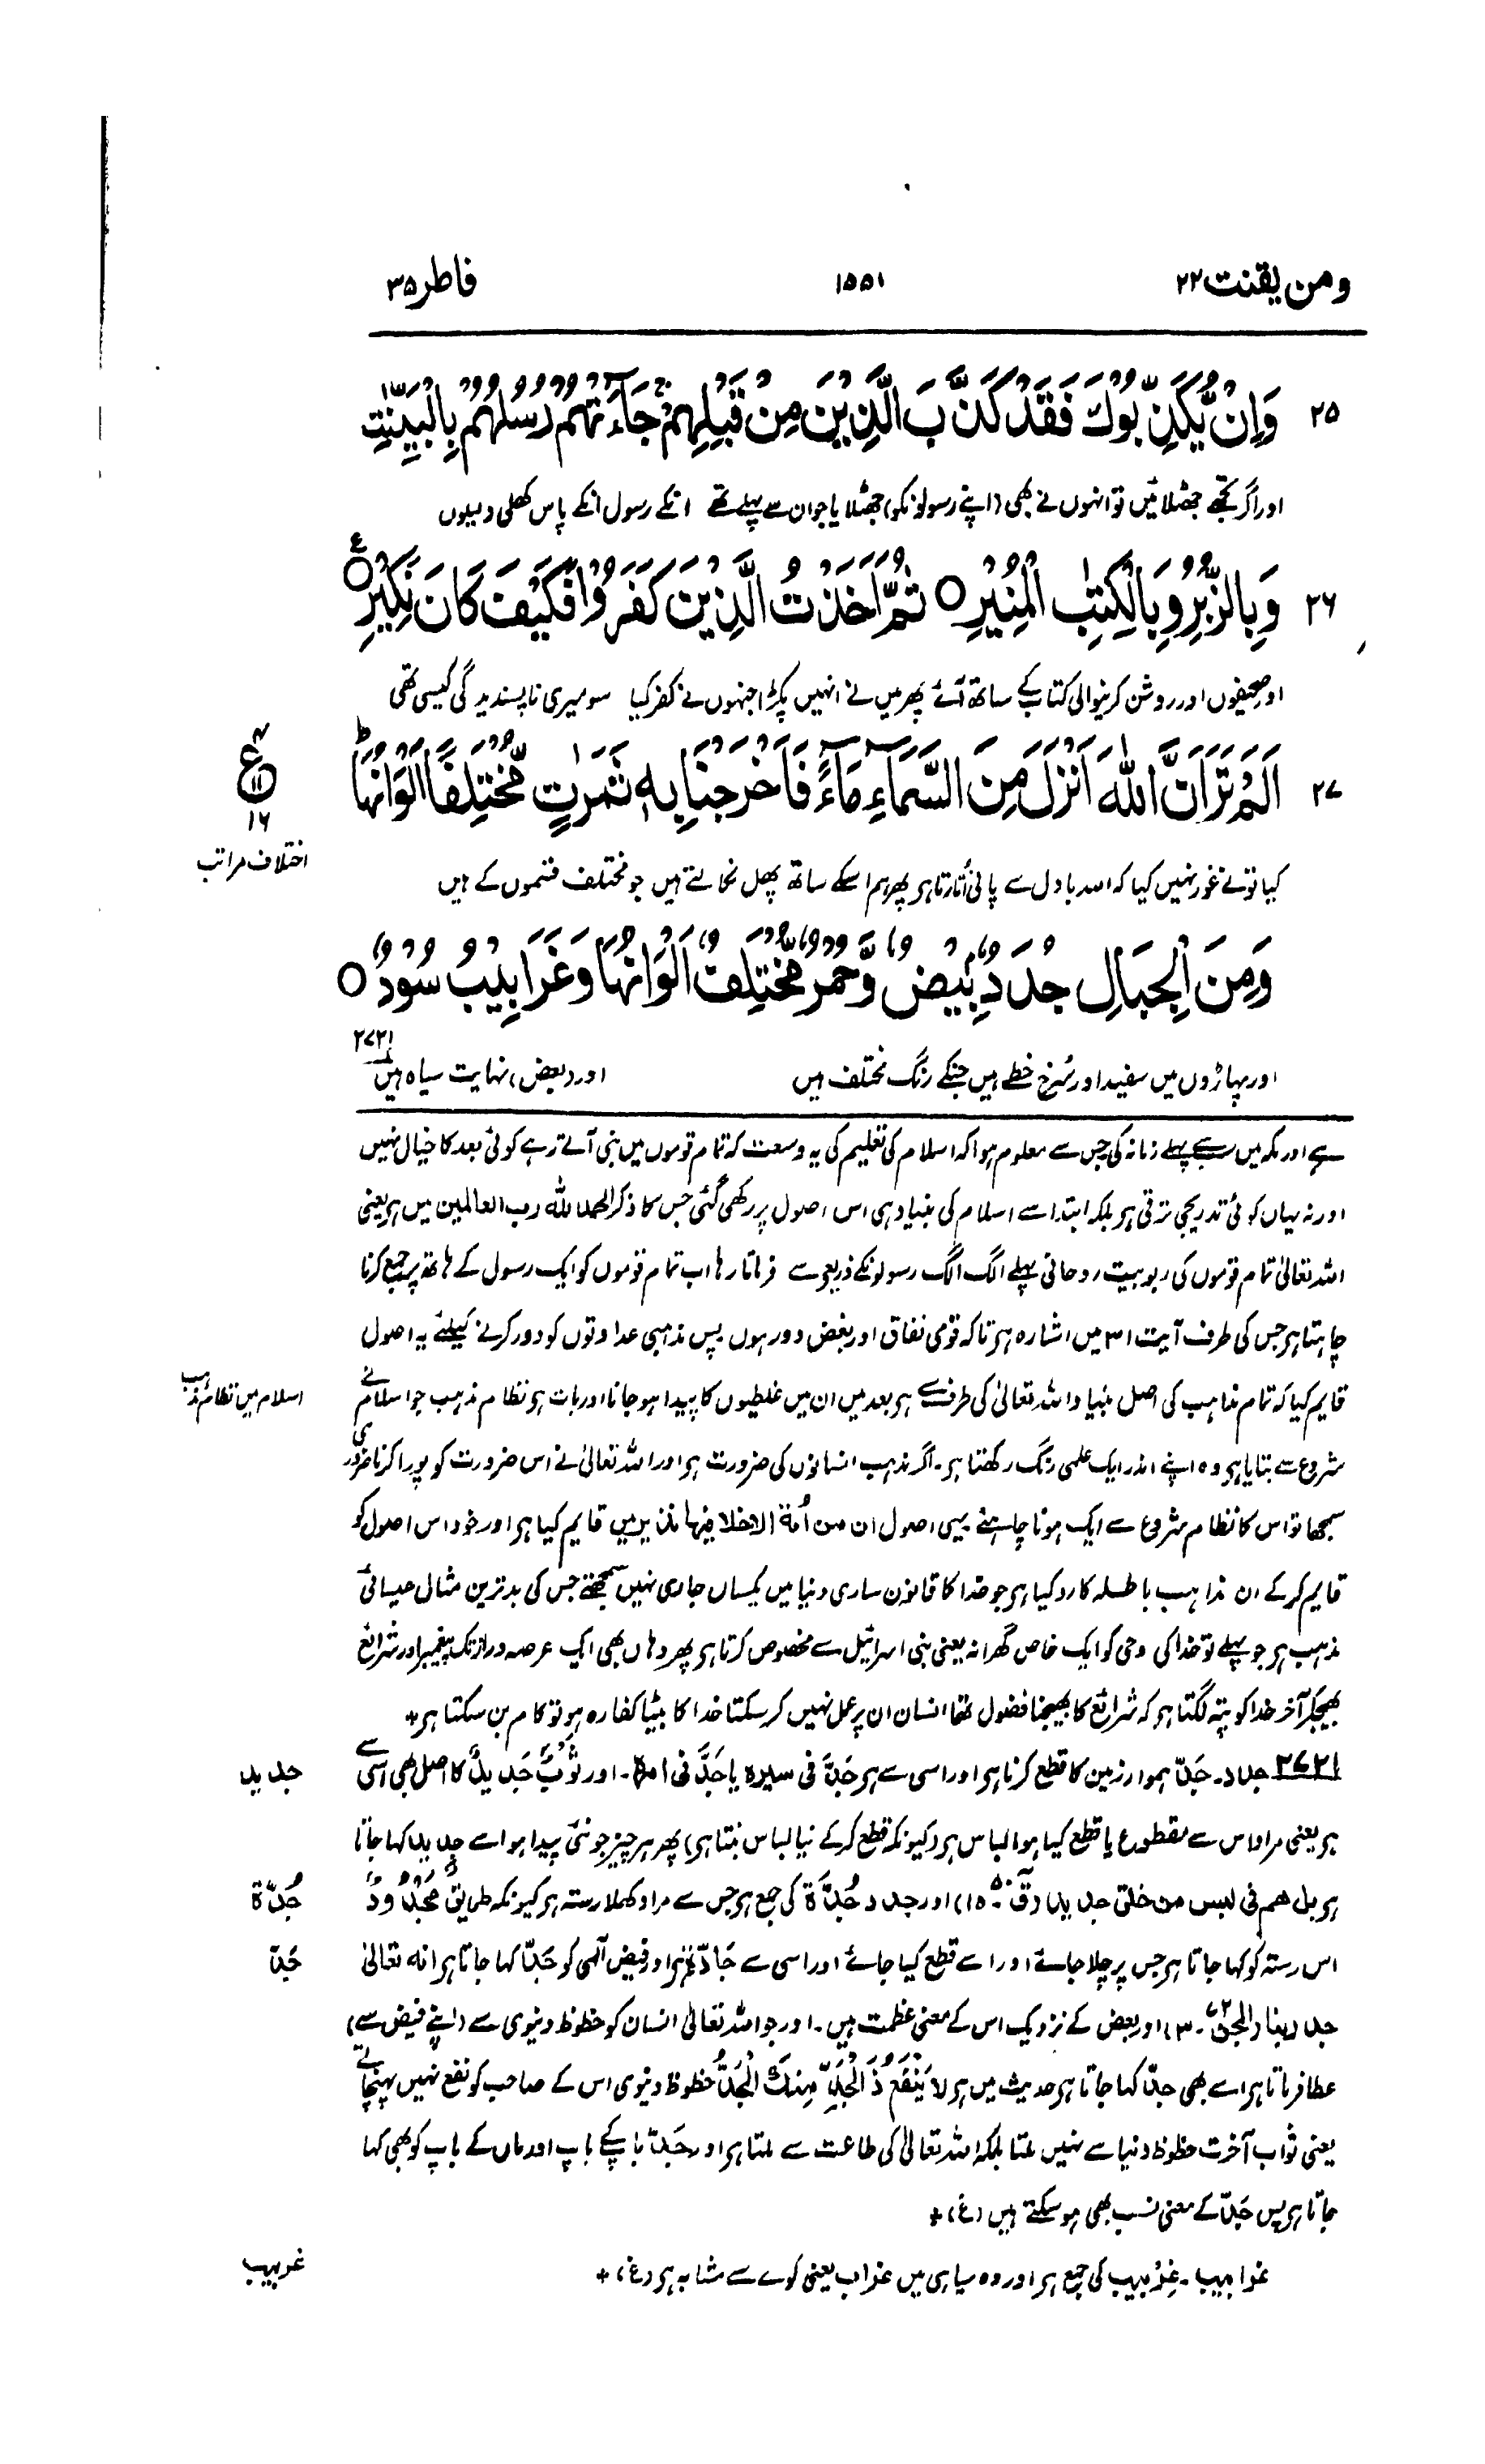 ومن یقنت ۲۲
۱۵۵۱
فاطر ۳۵
۲۵ وَاِنْ يُّكَذِّبُوْكَ فَقَدْ كَذَّبَ الَّذِيْنَ مِنْ قَبْلِهِمْ ۚ جَآءَتْهُمْ رُسُلُهُمْ بِالْبَيِّنٰتِ
اور اگر تجھے جھٹلائیں تو انہوں نے بھی (اپنے رسولونکو) جھٹلایا جو ان سے پہلے تھے انکے رسول انکے پاس کھلی دلیلوں
۲۶ وَبِالزُّبُرِ وَبِالْكِتٰبِ الْمُنِيْرِ ○ ثُمَّ اَخَذْتُ الَّذِيْنَ كَفَرُوْا فَكَيْفَ كَانَ نَكِيْرِ ○ ع
اور صحیفوں اور روشن کرنیوالی کتاب کے ساتھ آئے پھر میں نے انہیں پکڑا جنہوں نے کفر کیا سو میری ناپسندیدگی کیسی تھی
۲۷ اَلَمْ تَرَ اَنَّ اللّٰهَ اَنْزَلَ مِنَ السَّمَآءِ مَآءً ۚ فَاَخْرَجْنَا بِهٖ ثَمَرٰتٍ مُّخْتَلِفًا اَلْوَانُهَا ؕ
ع
۱۶
اختلاف مراتب
کیا تو نے غور نہیں کیا کہ اللہ بادل سے پانی اُتارتا ہر پھر ہم اسکے ساتھ پھل نکالتے ہیں جو مختلف قسموں کے ہیں
وَمِنَ الْجِبَالِ جُدَدٌۢ بِيْضٌ وَّحُمْرٌ مُّخْتَلِفٌ اَلْوَانُهَا وَغَرَابِيْبُ سُوْدٌ ○
اور پہاڑوں میں سفید اور سُرخ خطے ہیں جنکے رنگ مختلف ہیں اور (بعض) نہایت سیاہ ہیں ۲۷۲۱
ہے اور مکہ میں سب سے پہلے زمانہ کی جس سے معلوم ہوا کہ اسلام کی تعلیم کی یہ وسعت کہ تمام قوموں میں نبی آتے رہے کوئی بعد کا خیال نہیں
اور نہ یہاں کوئی تدریجی ترقی ہر بلکہ ابتدا سے اسلام کی بنیاد ہی اس اصول پر رکھی گئی جس کا ذکر الحمد للہ رب العالمین میں ہر یعنی
اللہ تعالیٰ تمام قوموں کی ربوبیت روحانی پہلے الگ الگ رسولونکے ذریعہ سے فرماتا رہا اب تمام قوموں کو ایک رسول کے ہاتھ پر جمع کرنا
چاہتا ہر جس کی طرف آیت ۳۱ میں اشارہ ہر تاکہ قومی نفاق اور بغض دور ہوں پس مذہبی عداوتوں کو دور کرنے کیلئے یہ اصول
قایم کیا کہ تمام مذاہب کی اصل بنیاد اللہ تعالیٰ کی طرف سے ہر بعد میں ان میں غلطیوں کا پیدا ہو جانا اور بات ہر نظام مذہب جو اسلام نے
اسلام میں نظام مذہب
شروع سے بتایا ہر وہ اپنے اندر ایک علمی رنگ رکھتا ہر ۔ اگر مذہب انسانوں کی ضرورت ہر اور اللہ تعالیٰ نے اس ضرورت کو پورا کرنا ضروری
سمجھا تو اس کا نظام شروع سے ایک ہونا چاہئے یہی اصول ان من اُمة الا خلا فیہا نذیر میں قایم کیا ہر اور خود اس اصول کو
قایم کر کے ان مذاہب باطلہ کا رد کیا ہر جو خدا کا قانون ساری دنیا میں یکساں جاری نہیں سمجھتے جس کی بدترین مثال عیسائی
مذہب ہر جو پہلے تو خدا کی وحی کو ایک خاص گھرانہ یعنی بنی اسرائیل سے مخصوص کرتا ہر پھر وہاں بھی ایک عرصہ دراز تک پیغمبر اور شرائع
بھیجکر آخر خدا کو پتہ لگتا ہر کہ شرائع کا بھیجنا فضول تھا انسان ان پر عمل نہیں کر سکتا خدا کا بیٹا کفارہ ہو تو کام بن سکتا ہر +
۲۷۲۱ جدد ۔ جَدّ ہموار زمین کا قطع کرنا ہر اور اسی سے ہر جَدَّ فی سیرہ یا جَدَّ فی امرہ ۔ اور ثَوْبٌ جَدِیدٌ کا اصل بھی اسی سے
جدید
ہر یعنی مراد اس سے مقطوع یا قطع کیا ہوا لباس ہر (کیونکہ قطع کر کے نیا لباس بنتا ہر) پھر ہر چیز جو نئی پیدا ہو اسے جدید کہا جاتا
ہر بل ھم فی لبس من خلق جدید (قٓ ۵۰ ۔ ۱۵) اور جدد جُدَّۃ کی جمع ہر جس سے مراد کھلا رستہ ہر کیونکہ طریقٌ مَجْدُوْدٌ
جُدّۃ
اس رستہ کو کہا جاتا ہر جس پر چلا جائے اور اسے قطع کیا جائے اور اسی سے جَادّۃ ہر اور فیض الٰہی کو جَدّ کہا جاتا ہر انہ تعالیٰ
جَدّ
جد ربنا (الجن ۷۲ ۔ ۳) اور بعض کے نزدیک اس کے معنی عظمت ہیں ۔ اور جو اللہ تعالیٰ انسان کو حظوظ دنیوی سے (اپنے فیض سے)
عطا فرماتا ہر اسے بھی جدّ کہا جاتا ہر حدیث میں ہر لَا یَنْفَعُ ذَا الْجَدِّ مِنْكَ الْجَدُّ حظوظ دنیوی اس کے صاحب کو نفع نہیں پہنچاتے
یعنی ثواب آخرت حظوظ دنیا سے نہیں ملتا بلکہ اللہ تعالیٰ کی طاعت سے ملتا ہر اور جَدّ باپ کے باپ اور ماں کے باپ کو بھی کہا
جاتا ہر پس جَدّ کے معنی نسب بھی ہو سکتے ہیں (غ) +
غرابیب ۔ غِرْبیب کی جمع ہر اور وہ سیاہی میں غراب یعنی کوے سے مشابہ ہر (غ) +
غربیب